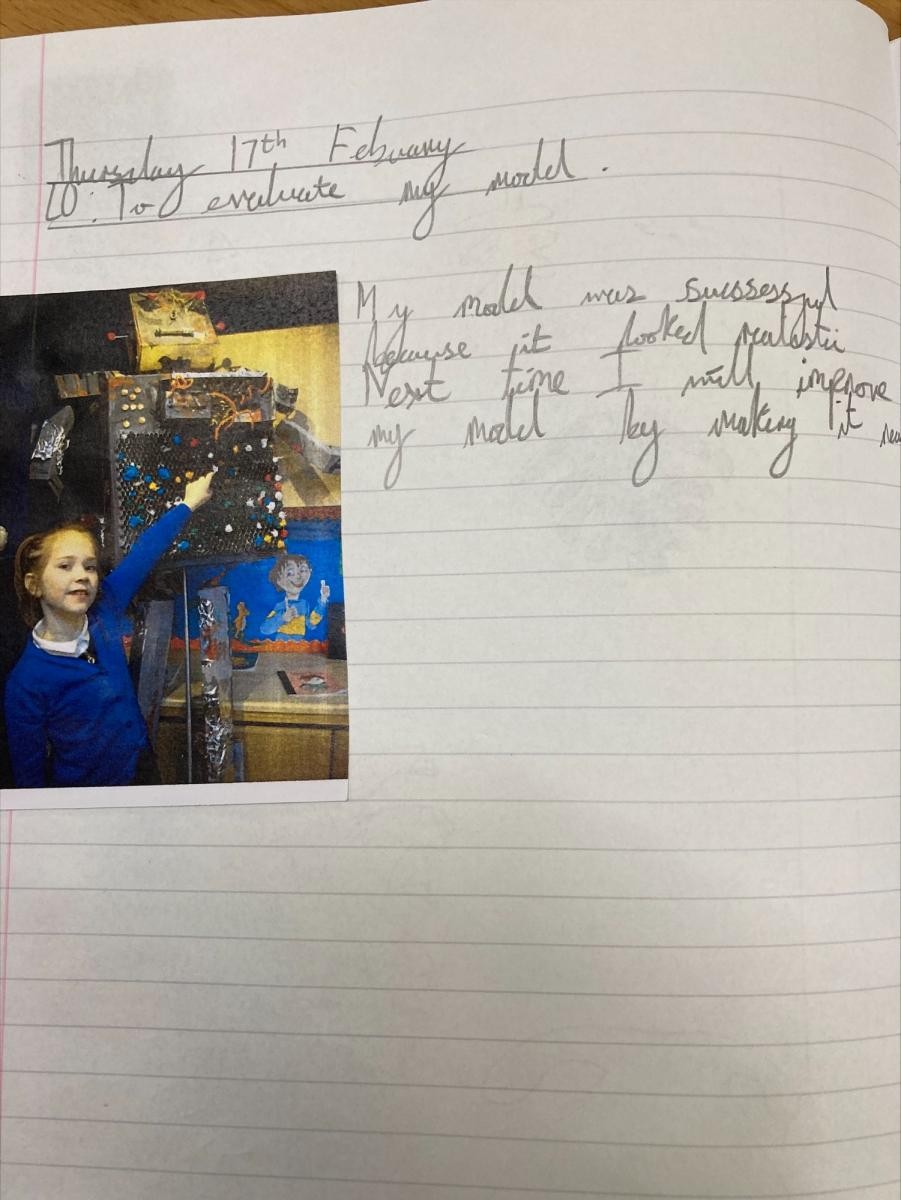 Thursday 17th Febuary
LO: To evaluate my model.
My model was sucssesful
because it looked realistic
Next time I will improve
my model by making it